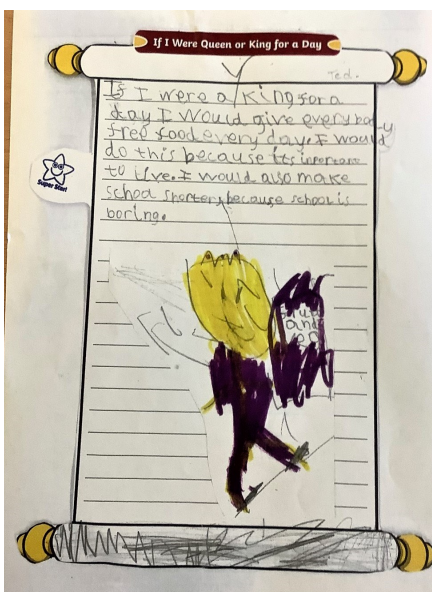 If I Were Queen or King for a Day
Ted.
If I were a King for a
day I would give everybody
free food every day. I would
do this because its
to live. I would also make
school because school is
boring.
Super Star!
and